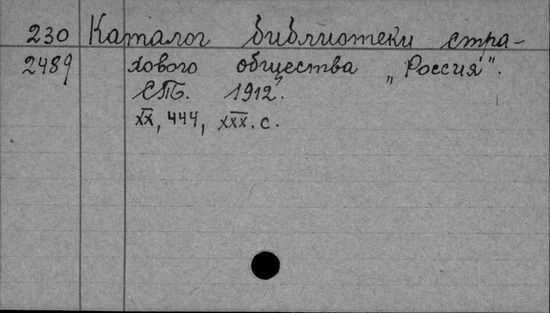 230 Каталог библиотеки стра-
2489 хового общества „Россия".
СПб. 1912.
XX, 444, XXX. с.